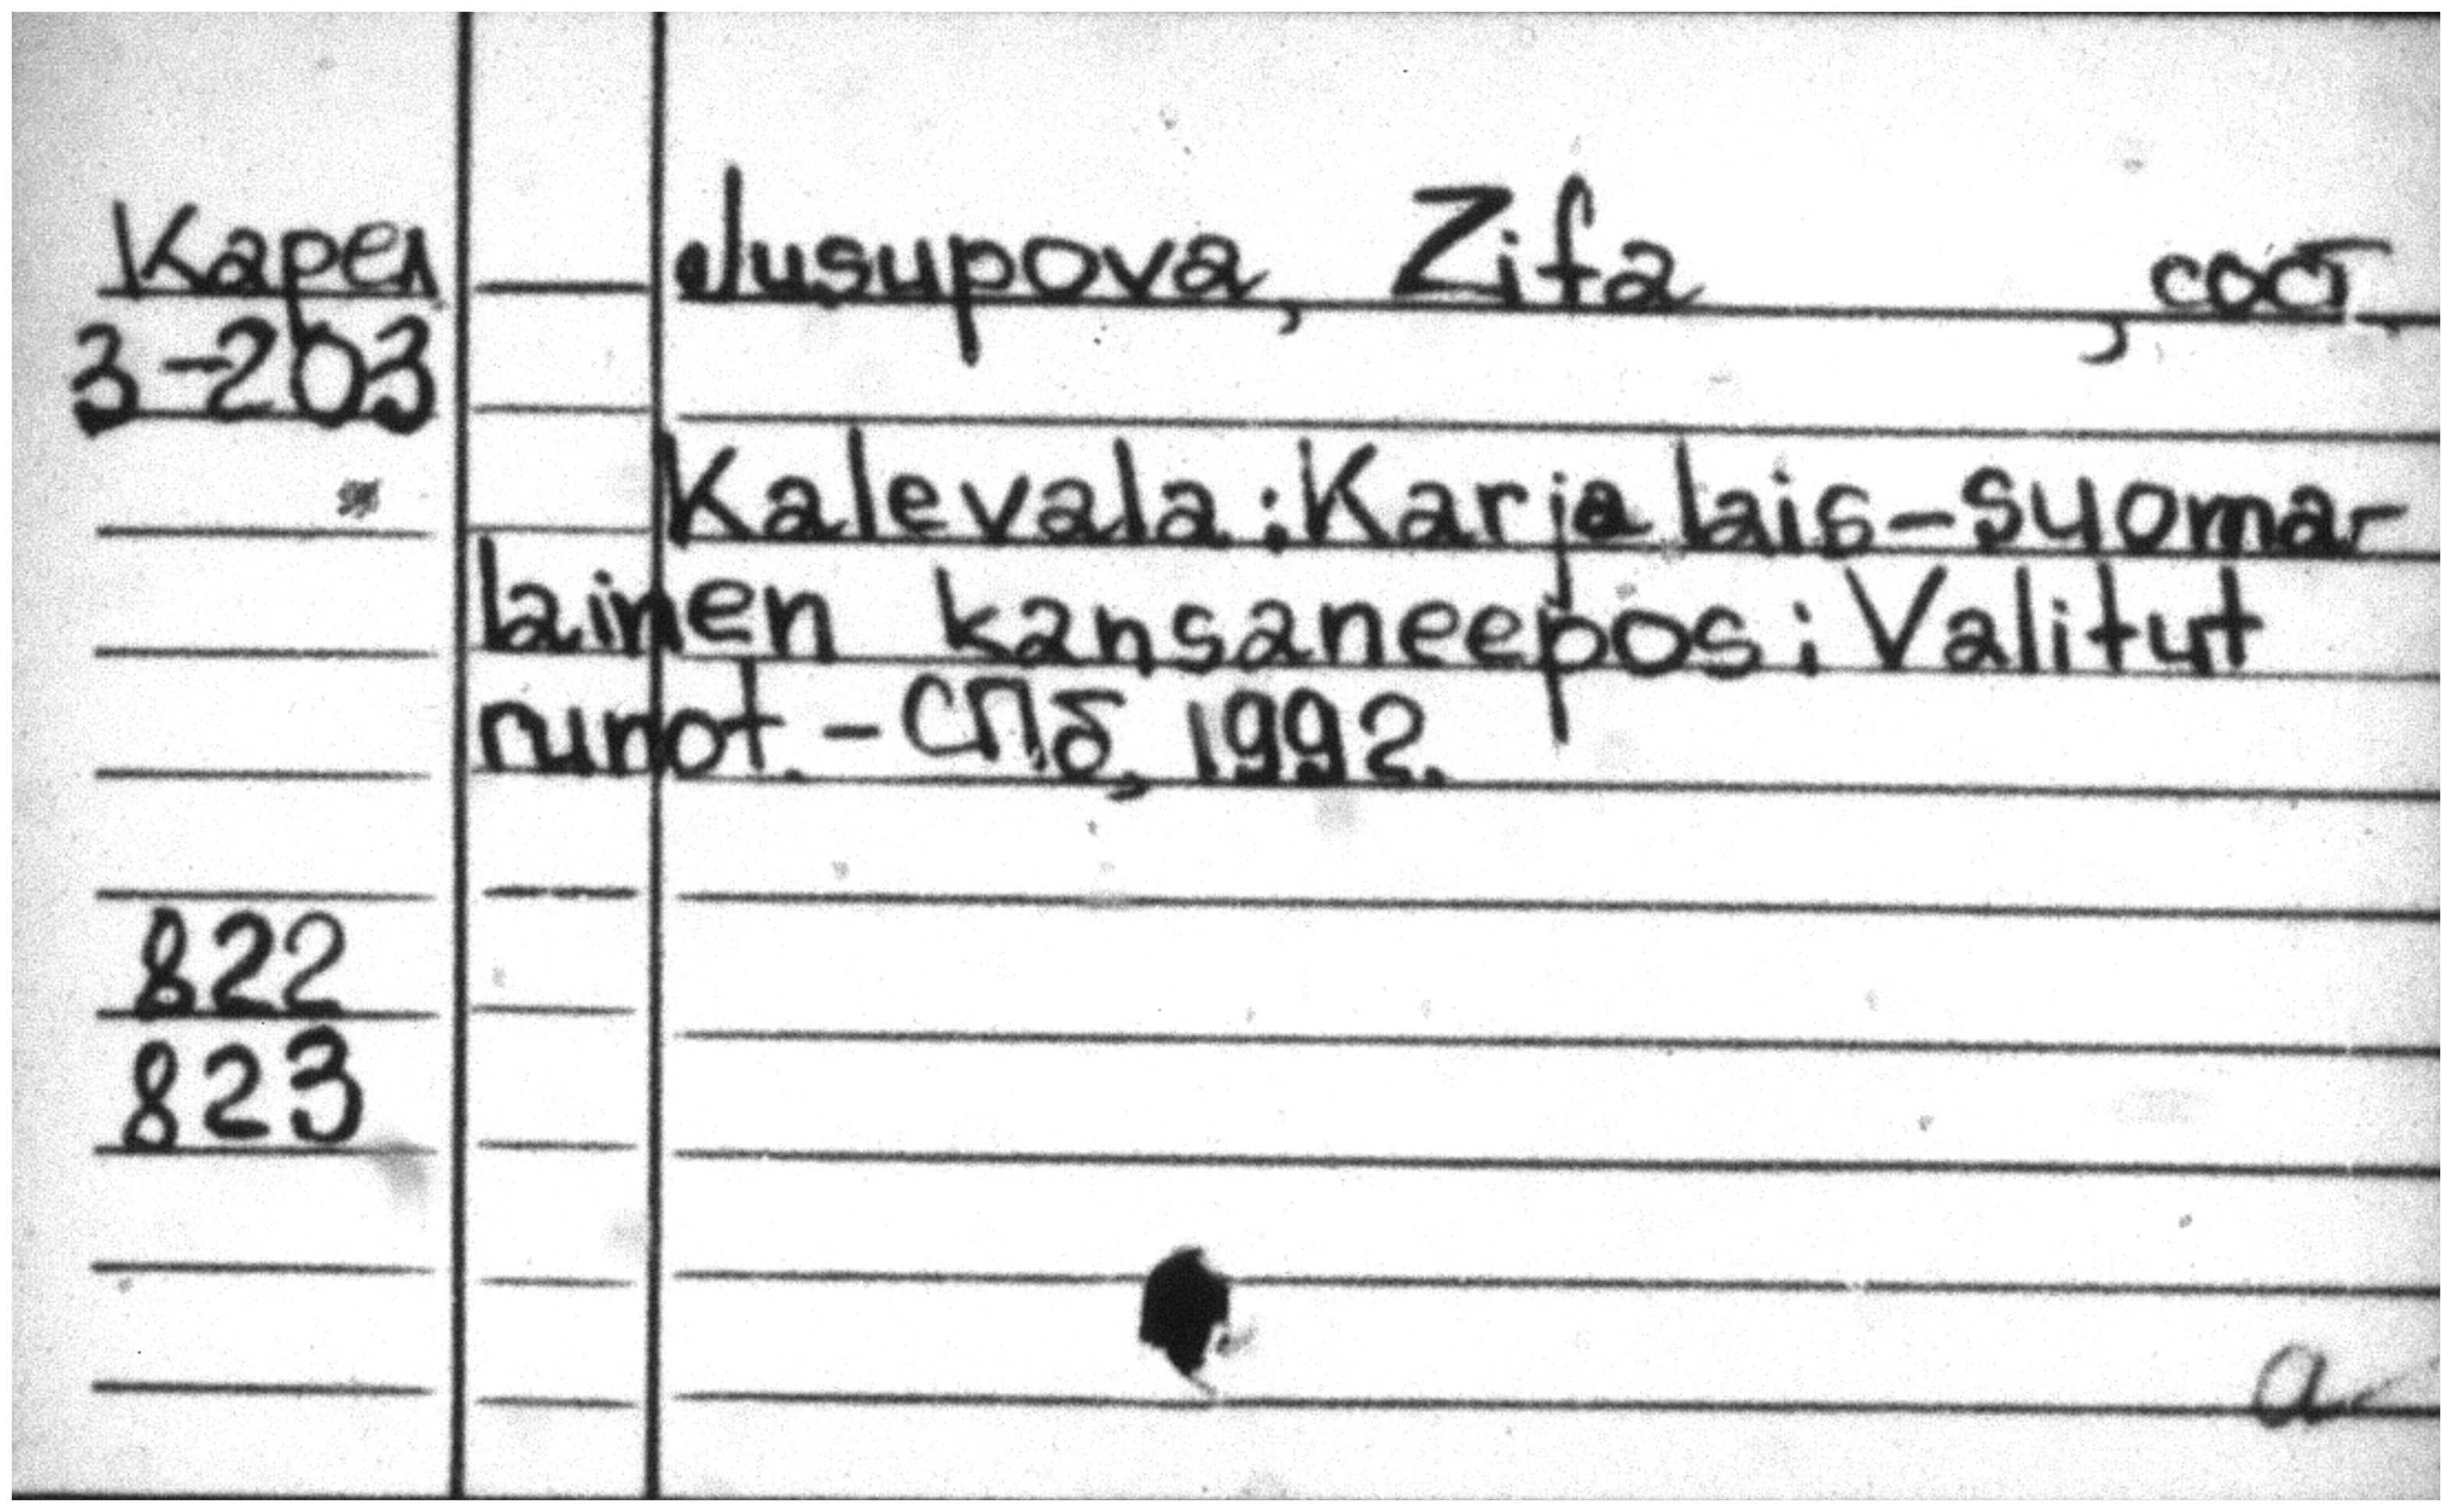 Карел Jusupova, Zifa , сост.
3-203
Kalevala: Karjalais-suoma-
lainen kansaneepos: Valitut
runot. - СПб, 1992.
822
823
a